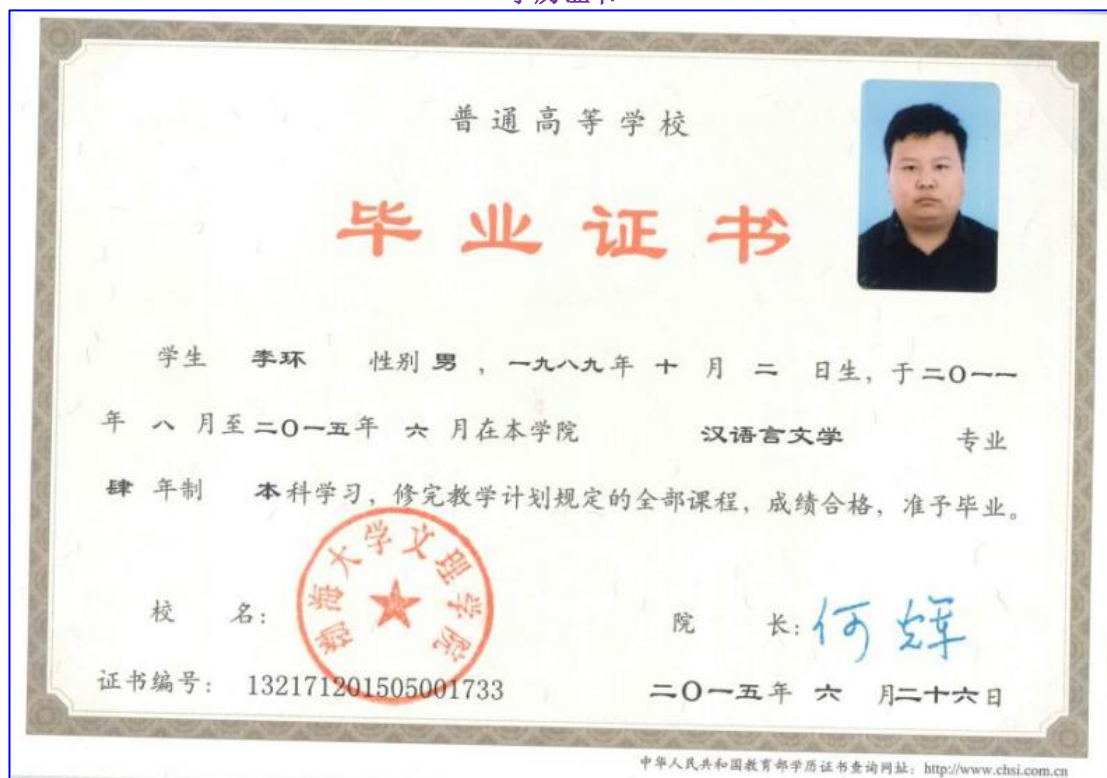 学历证书
普通高等学校
毕业证书
学生 李环 性别 男 ，一九八九年 十 月 二 日生，于二〇一一
年 八 月至二〇一五年 六 月在本学院 汉语言文学 专业
肆 年制 本科学习，修完教学计划规定的全部课程，成绩合格，准予毕业。
渤海大学文理学院
校 名： 院 长：何辉
证书编号： 132171201505001733 二〇一五年 六 月二十六日
中华人民共和国教育部学历证书查询网址：http://www.chsi.com.cn